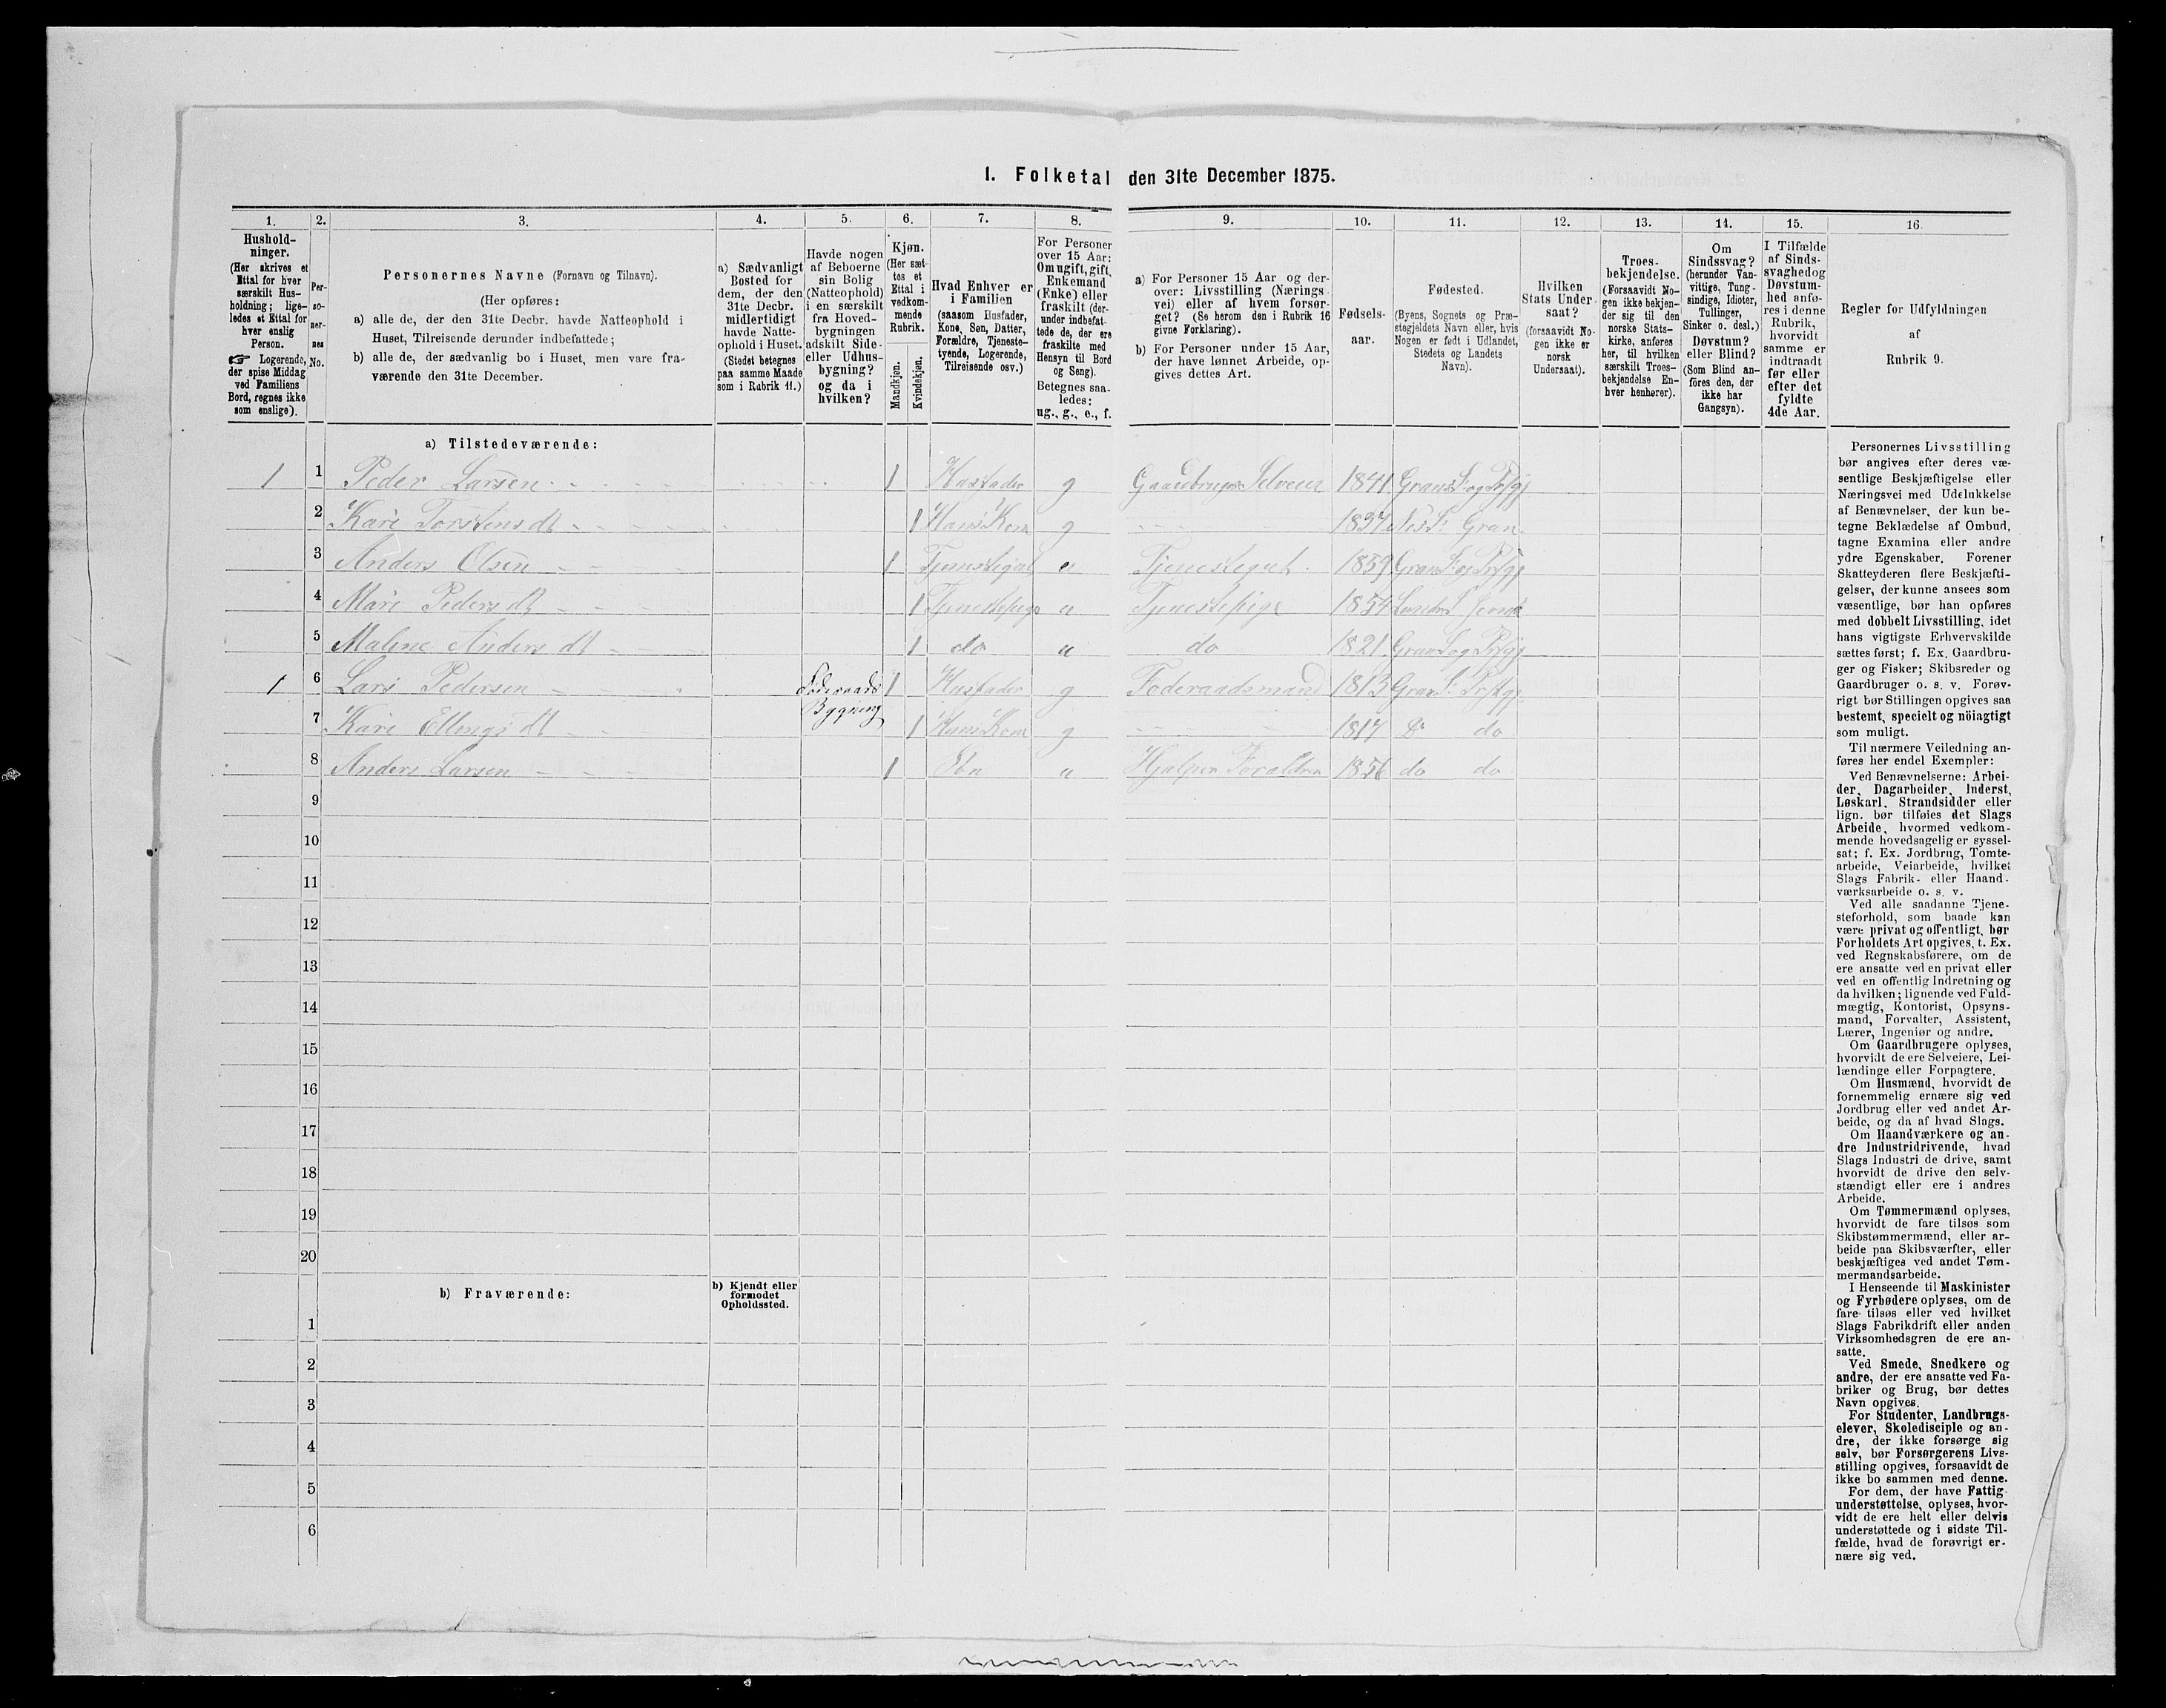 1. Folketal den 31te December 1875.
1.
Hushold-
ninger.
(Her skrives et
Ettal for hver
særskilt Hus-
holdning; lige-
ledes et Ettal for
hver enslig
Person.
☞ Logerende,
der spise Middag
ved Familiens
Bord, regnes ikke
som enslige).
2.
Per-
so-
ner-
nes
No.
3.
Personernes Navne (Fornavn og Tilnavn).
(Her opføres:
a) alle de, der den 31te Decbr. havde Natteophold i
Huset, Tilreisende derunder indbefattede;
b) alle de, der sædvanlig bo i Huset, men vare fra-
værende den 31te December.
4.
a) Sædvanligt
Bosted for
dem, der den
31te Decbr.
midlertidigt
havde Natte-
ophold i Huset.
(Stedet betegnes
paa samme Maade
som i Rubrik 11.)
5.
Havde nogen
af Beboerne
sin Bolig
(Natteophold)
i en særskilt
fra Hoved-
bygningen
adskilt Side-
eller Udhus-
bygning?
og da i
hvilken?
6.
Kjøn.
(Her sæt-
tes et
Ettal i
vedkom-
mende
Rubrik.
Mandkjøn.
Kvindekjøn.
7.
Hvad Enhver er
i Familien
(saasom Husfader,
Kone, Søn, Datter,
Forældre, Tjeneste-
tyende, Logerende,
Tilreisende osv.)
8.
For Personer
over 15 Aar:
Om ugift, gift,
Enkemand
(Enke) eller
fraskilt (der-
under indbefat-
tede de, der ere
fraskilte med
Hensyn til Bord
og Seng).
Betegnes saa-
ledes:
ug., g., e., f.
9.
a) For Personer 15 Aar og der-
over: Livsstilling (Nærings-
vei) eller af hvem forsør-
get? (Se herom den i Rubrik 16
givne Forklaring).
b) For Personer under 15 Aar,
der have lønnet Arbeide, op-
gives dettes Art.
10.
Fødsels-
aar.
11.
Fødested.
(Byens, Sognets og Præ-
stegjeldets Navn eller, hvis
Nogen er født i Udlandet,
Stedets og Landets
Navn).
12.
Hvilken
Stats Under-
saat?
(forsaavidt No-
gen ikke er
norsk
Undersaat).
13.
Troes-
bekjendelse.
(Forsaavidt No-
gen ikke bekjen-
der sig til den
norske Stats-
kirke, anføres
her, til hvilken
særskilt Troes-
bekjendelse En-
hver henhører).
14.
Om
Sindssvag?
(herunder Van-
vittige, Tung-
sindige, Idioter,
Tullinger,
Sinker o. desl.)
Døvstum?
eller Blind?
(Som Blind an-
føres den, der
ikke har
Gangsyn).
15.
I Tilfælde
af Sinds-
svaghed og
Døvstum-
hed anfø-
res i denne
Rubrik,
hvorvidt
samme er
indtraadt
før eller
efter det
fyldte
4de Aar.
16.
Regler for Udfyldningen
af
Rubrik 9.
a) Tilstedeværende:
1 1 Peder Larsen 1 Husfader g Gaardbruger Selveier 1841 Grans S. og Prfgj
2 Kari Torstensdt 1 Hans Kone g 1837 Næs S. Gran
3 Anders Olsen 1 Tjenstegut u Tjenestegut 1859 Grans S. og Prfgj
4 Mari Pedersdt 1 Tjenestepige u Tjenestepige 1854
5 Maline Andersdt 1 do u do 1821 Grans S og Prfgj
1 6 Lars Pedersen Föderaads Bygning 1 Husfader g Foderaadsmand 1813 Gran S. Prfgj
7 Kari Ellingsdt 1 Hans Kone g 1817 Do do
8 Anders Larsen 1 Søn u Hjælper Forældrene 1856 do do
9
10
11
12
13
14
15
16
17
18
19
20
b) Fraværende:
b) Kjendt eller
formodet
Opholdssted.
1
2
3
4
5
6
Personernes Livsstilling
bør angives efter deres væ-
sentlige Beskjæftigelse eller
Næringsvei med Udelukkelse
af Benævnelser, der kun be-
tegne Beklædelse af Ombud,
tagne Examina eller andre
ydre Egenskaber. Forener
Skatteyderen flere Beskjæfti-
gelser, der kunne ansees som
væsentlige, bør han opføres
med dobbelt Livsstilling, idet
hans vigtigste Erhvervskilde
sættes først; f. Ex. Gaardbru-
ger og Fisker; Skibsreder og
Gaardbruger o. s. v. Forøv-
rigt bør Stillingen opgives saa
bestemt, specielt og nöiagtigt
som muligt.
Til nærmere Veiledning an-
føres her endel Exempler:
Ved Benævnelserne: Arbei-
der, Dagarbeider, Inderst,
Løskarl, Strandsidder eller
lign. bør tilføies det Slags
Arbeide, hvormed vedkom-
mende hovedsagelig er syssel-
sat; f. Ex. Jordbrug, Tomte-
arbeide, Veiarbeide, hvilket
Slags Fabrik- eller Haand-
værksarbeide o. s. v.
Ved alle saadanne Tjene-
steforhold, som baade kan
være privat og offentligt, bør
Forholdets Art opgives, t. Ex.
ved Regnskabsførere, om de
ere ansatte ved en privat eller
ved en offentlig Indretning og
da hvilken; lignende ved Fuld-
mægtig, Kontorist, Opsyns-
mand, Forvalter, Assistent,
Lærer, Ingeniør og andre.
Om Gaardbrugere oplyses,
hvorvidt de ere Selveiere, Lei-
lændinge eller Forpagtere.
Om Husmænd, hvorvidt de
fornemmelig ernære sig ved
Jordbrug eller ved andet Ar-
beide, og da af hvad Slags.
Om Haandværkere og an-
dre Industridrivende, hvad
Slags Industri de drive, samt
hvorvidt de drive den selv-
stændigt eller ere i andres
Arbeide.
Om Tømmermænd oplyses,
hvorvidt de fare tilsøs som
Skibstømmermænd, eller ar-
beide paa Skibsværfter, eller
beskjæftiges ved andet Tøm-
mermandsarbeide.
I Henseende til Maskinister
og Fyrbødere oplyses, om de
fare tilsøs eller ved hvilket
Slags Fabrikdrift eller anden
Virksomhedsgren de ere an-
satte.
Ved Smede, Snedkere og
andre, der ere ansatte ved Fa-
briker og Brug, bør dettes
Navn opgives.
For Studenter, Landbrugs-
elever, Skoledisciple og an-
dre, der ikke forsørge sig
selv, bør Forsørgerens Livs-
stilling opgives, forsaavidt de
ikke bo sammen med denne.
For dem, der have Fattig-
understøttelse, oplyses, hvor-
vidt de ere helt eller delvis
understøttede og i sidste Til-
fælde, hvad de forøvrigt er-
nære sig ved.